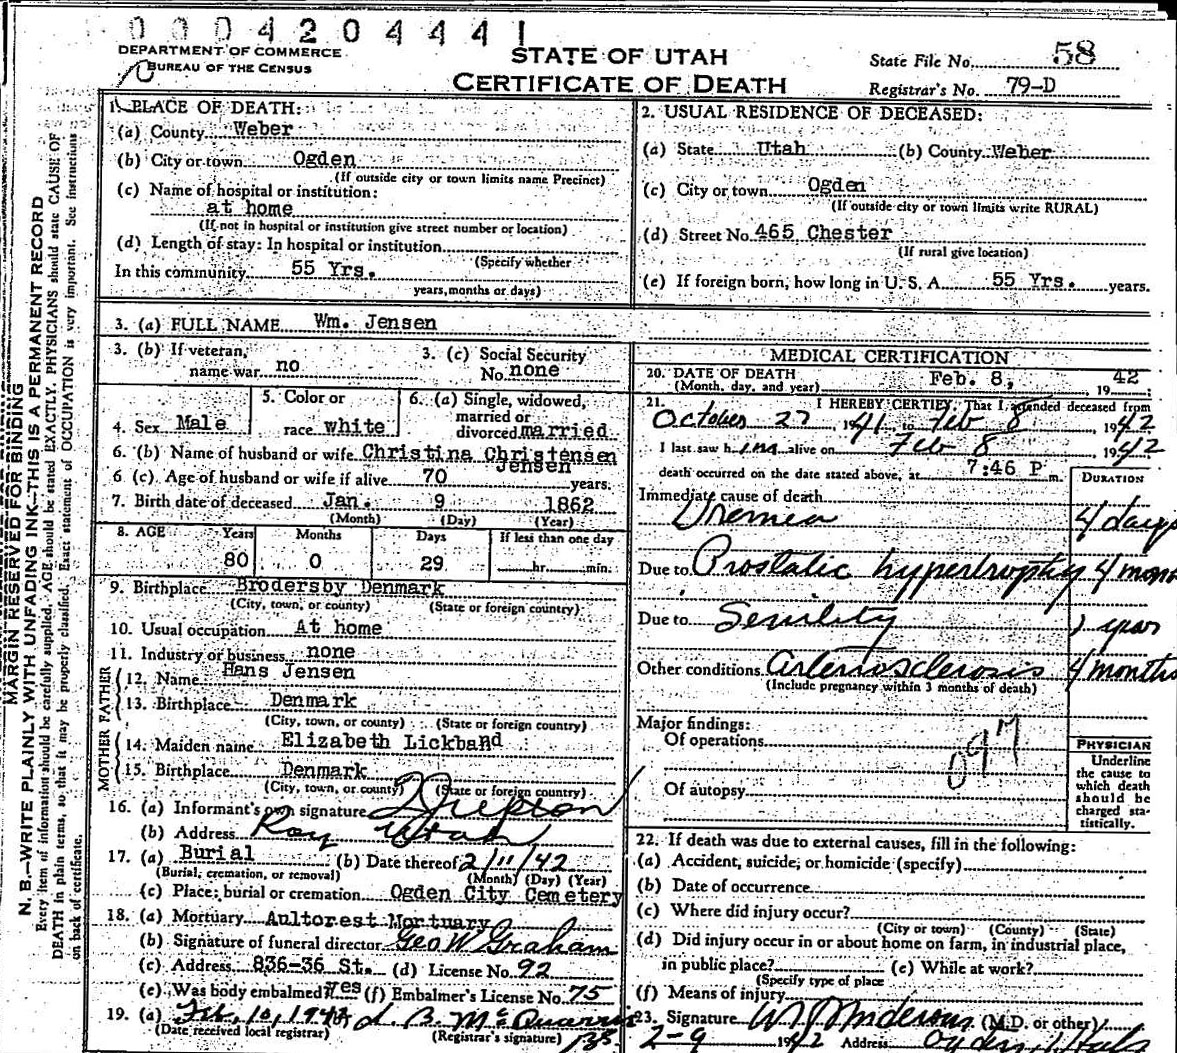 0004204441
DEPARTMENT OF COMMERCE
BUREAU OF THE CENSUS
STATE OF UTAH
CERTIFICATE OF DEATH
State File No. 58
Registrar's No. 79-D
MARGIN RESERVED FOR BINDING
N. B.—WRITE PLAINLY WITH UNFADING INK—THIS IS A PERMANENT RECORD
Every item of information should be carefully supplied. AGE should be stated EXACTLY. PHYSICIANS should state CAUSE OF
DEATH in plain terms, so that it may be properly classified. Exact statement of OCCUPATION is very important. See instructions
on back of certificate.
1. PLACE OF DEATH:
(a) County Weber
(b) City or town Ogden
(If outside city or town limits name Precinct)
(c) Name of hospital or institution:
at home
(If not in hospital or institution give street number or location)
(d) Length of stay: In hospital or institution
(Specify whether
In this community 55 Yrs.
years, months or days)
2. USUAL RESIDENCE OF DECEASED:
(a) State Utah (b) County Weber
(c) City or town Ogden
(If outside city or town limits write RURAL)
(d) Street No. 465 Chester
(If rural give location)
(e) If foreign born, how long in U. S. A. 55 Yrs. years.
3. (a) FULL NAME Wm. Jensen
3. (b) If veteran, name war no
3. (c) Social Security No. none
4. Sex Male
5. Color or race white
6. (a) Single, widowed, married or divorced married
6. (b) Name of husband or wife Christina Christensen
Jensen
6 (c). Age of husband or wife if alive 70 years.
7. Birth date of deceased Jan. 9 1862
(Month) (Day) (Year)
8. AGE Years Months Days If less than one day
80 0 29 hr. min.
9. Birthplace Brodersby Denmark
(City, town, or county) (State or foreign country)
10. Usual occupation At home
11. Industry or business none
FATHER
12. Name Hans Jensen
13. Birthplace Denmark
(City, town, or county) (State or foreign country)
MOTHER
14. Maiden name Elizabeth Lickband
15. Birthplace Denmark
(City, town, or county) (State or foreign country)
16. (a) Informant's own signature
(b) Address Roy Utah
17. (a) Burial (b) Date thereof 2/11/42
(Burial, cremation, or removal) (Month) (Day) (Year)
(c) Place; burial or cremation Ogden City Cemetery
18. (a) Mortuary Aultorest Mortuary
(b) Signature of funeral director Geo W Graham
(c) Address 836-36 St. (d) License No. 92
(e) Was body embalmed? Yes (f) Embalmer's License No. 75
19. (a) Feb. 10, 1942
(Date received local registrar) (Registrar's signature)
MEDICAL CERTIFICATION
20. DATE OF DEATH
(Month, day, and year) Feb. 8, 1942
21. I HEREBY CERTIFY, That I attended deceased from
October 27, 1941, to Feb 8, 1942
I last saw him alive on Feb 8 1942
death occurred on the date stated above, at 7:46 P m.
DURATION
Immediate cause of death
Uremia 4 days
Due to Prostatic hypertrophy 4 mon
Due to Senility 1 year
Other conditions arteriosclerosis 4 months
(Include pregnancy within 3 months of death)
Major findings:
Of operations
Of autopsy
PHYSICIAN
Underline
the cause to
which death
should be
charged sta-
tistically.
22. If death was due to external causes, fill in the following:
(a) Accident, suicide, or homicide (specify)
(b) Date of occurrence
(c) Where did injury occur?
(City or town) (County) (State)
(d) Did injury occur in or about home on farm, in industrial place,
in public place? (e) While at work?
(Specify type of place
(f) Means of injury
23. Signature (M.D. or other)
2-9 1942 Address